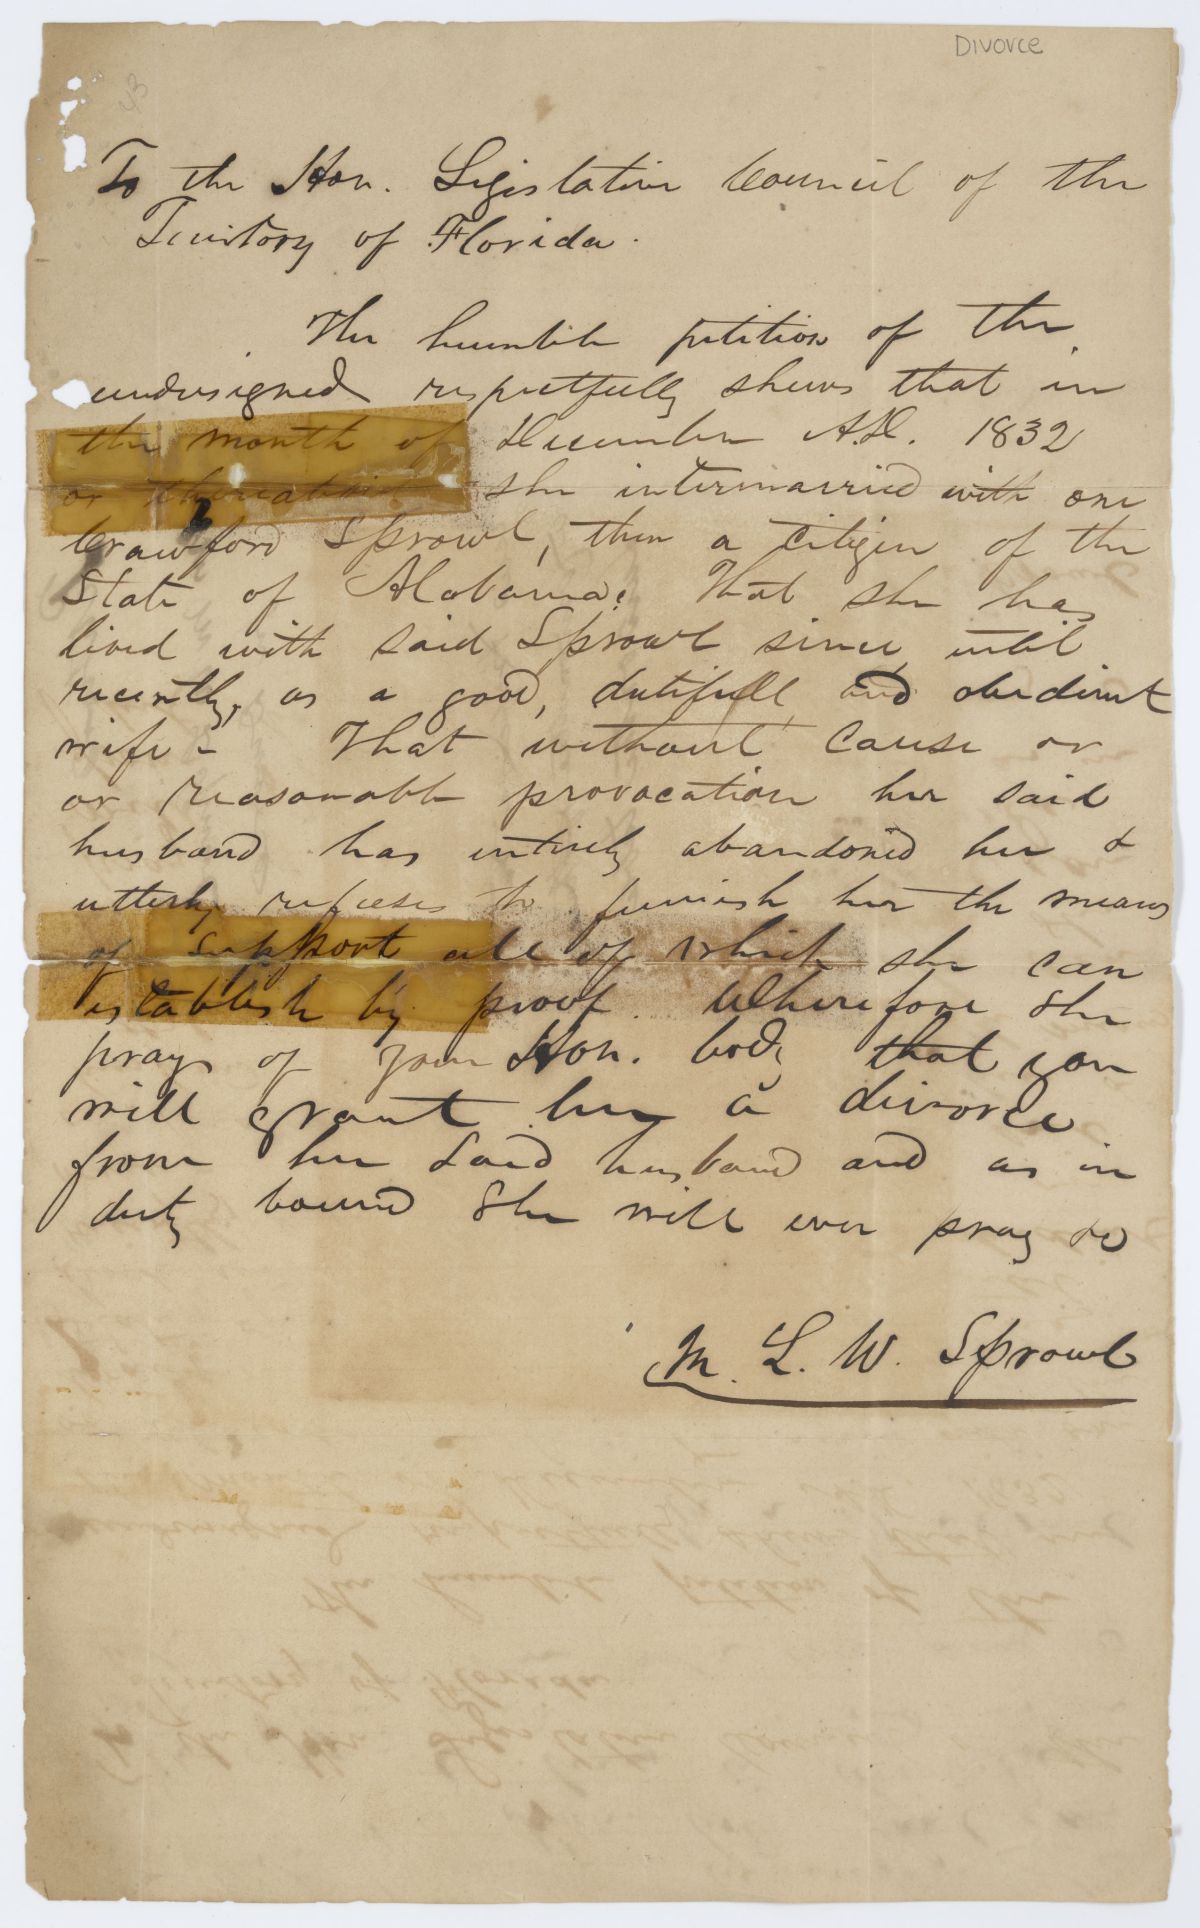 Divorce
43
To the Hon. Legislative Council of the
Territory of Florida.
The humble petition of the
undersigned respectfully shews that in
the month of December A.D. 1832
or thereabout she intermarried with one
Crawford Sprowl, then a citizen of the
State of Alabama: That she has
lived with said Sprowl since, until
recently, as a good, dutifull, and obedient
wife - That without cause or
or reasonable provocation her said
husband has entirely abandoned her &
utterly refuses to furnish her the means
of support all of which she can
establish by proof. Wherefore she
prays of your Hon. body that you
will grant her a divorce
from her said husband and as in
duty bound she will ever pray &c
M. L. W. Sprowl